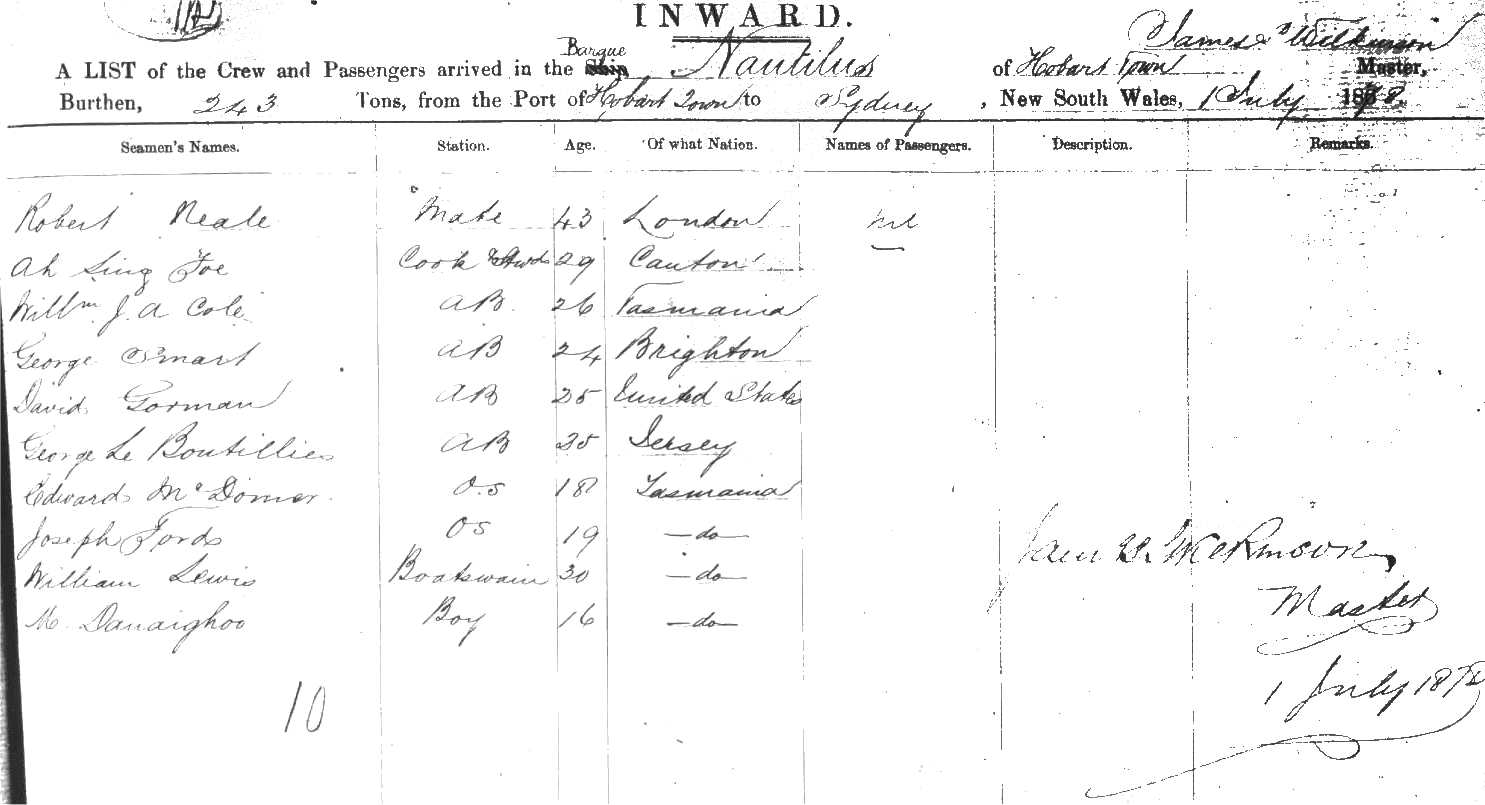 INWARD.
James Wilkinson
A LIST of the Crew and Passengers arrived in the Ship Barque Nautilus of Hobart Town Master,
Burthen, 243 Tons, from the Port of Hobart Town to Sydney, New South Wales, 1 July 187
Seamen's Names. Station. Age. Of what Nation. Names of Passengers. Description. Remarks.
Robert Neale Mate 43 London nil
Ah Sing Foe Cook & Stwd 29 Canton
Willm J. A Cole AB. 26 Tasmania
George Smart AB 24 Brighton
David Gorman AB 25 United States
George Le Boutillier AB 25 Jersey
Edward O.S 18 Tasmania
Joseph Fords OS 19 -do-
William Lewis Boatswain 30 -do-
M. Boy 16 -do-
10
James Wilkinson
Master
1 July 187